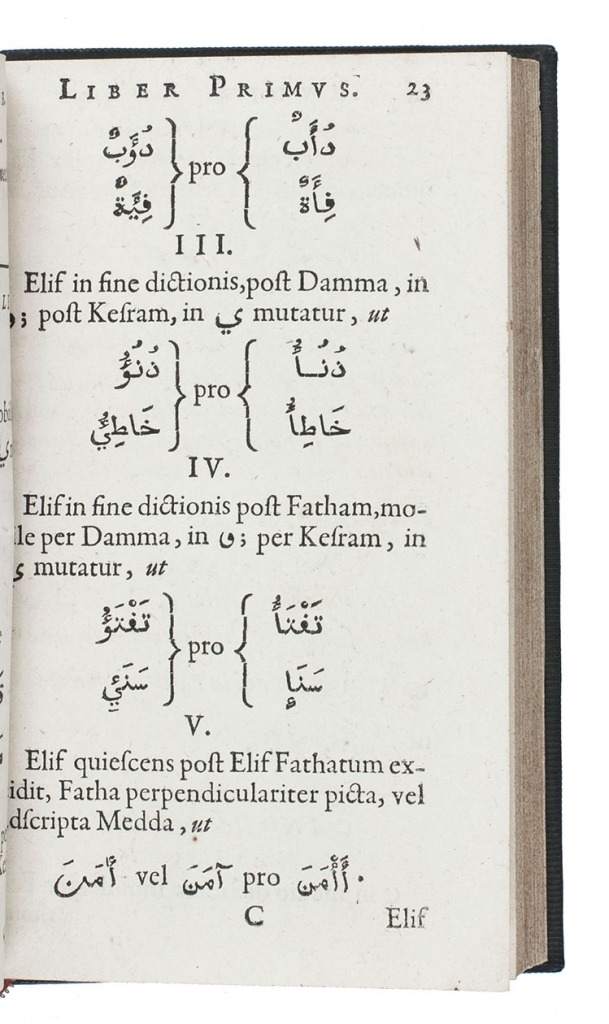 LIBER PRIMVS. 23
دُؤَبٌ } pro { دُأَبٌ
فِئَةٌ } pro { فِأَةٌ
III.
Elif in fine dictionis, poſt Damma, in
و; poſt Keſram, in ي mutatur, ut
دُنُؤُ } pro { دُنُـأُ
خَاطِئُ } pro { خَاطِأُ
IV.
Elif in fine dictionis poſt Fatham, mo-
ile per Damma, in و; per Keſram, in
ي mutatur, ut
تَفْتَؤُ } pro { تَفْتَأُ
سَنَئِ } pro { سَنَإِ
V.
Elif quieſcens poſt Elif Fathatum ex-
idit, Fatha perpendiculariter picta, vel
dſcripta Medda, ut
أٰمَنَ vel آمَنَ pro أَأْمَنَ.
C Elif